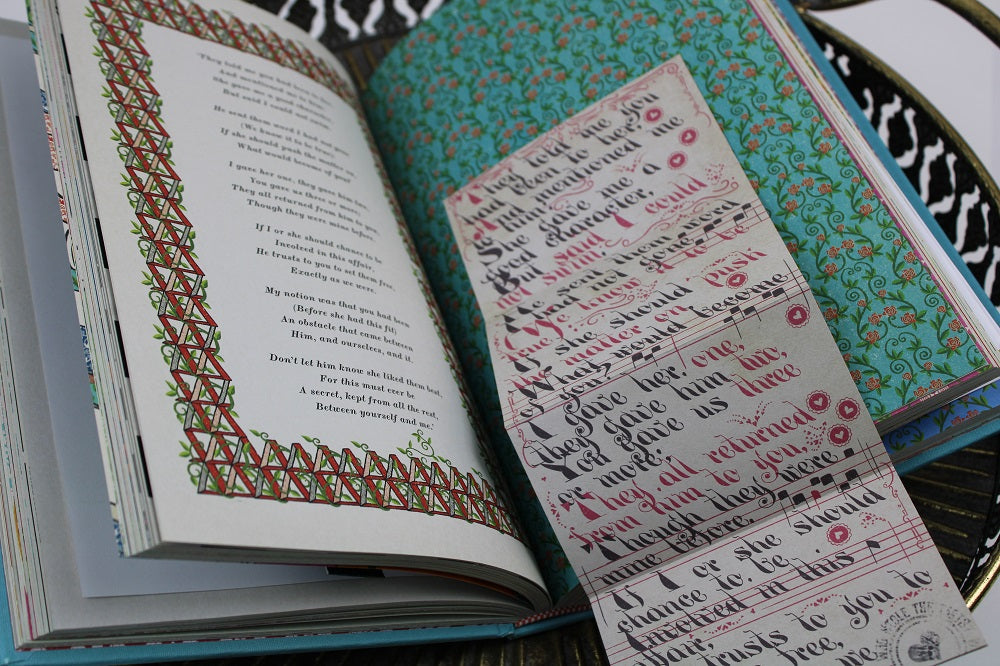 'They told me you had been to her,
And mentioned me to him:
She gave me a good character,
But said I could not swim.
He sent them word I had not gone
(We know it to be true):
If she should push the matter on,
What would become of you?
I gave her one, they gave him two,
You gave us three or more;
They all returned from him to you,
Though they were mine before.
If I or she should chance to be
Involved in this affair,
He trusts to you to set them free,
Exactly as we were.
My notion was that you had been
(Before she had this fit)
An obstacle that came between
Him, and ourselves, and it.
Don't let him know she liked them best,
For this must ever be
A secret, kept from all the rest,
Between yourself and me.'
They told me you
had been to her,
And mentioned me
to him:
She gave me a
good character,
But said I could
not swim.
He sent them word
I had not gone
(We know it to be
true):
If she should push
the matter on,
What would become
of you?
I gave her one,
they gave him two,
You gave us three
or more;
They all returned
from him to you,
Though they were
mine before.
If I or she should
chance to be
Involved in this
affair,
trusts to you to
free,
we